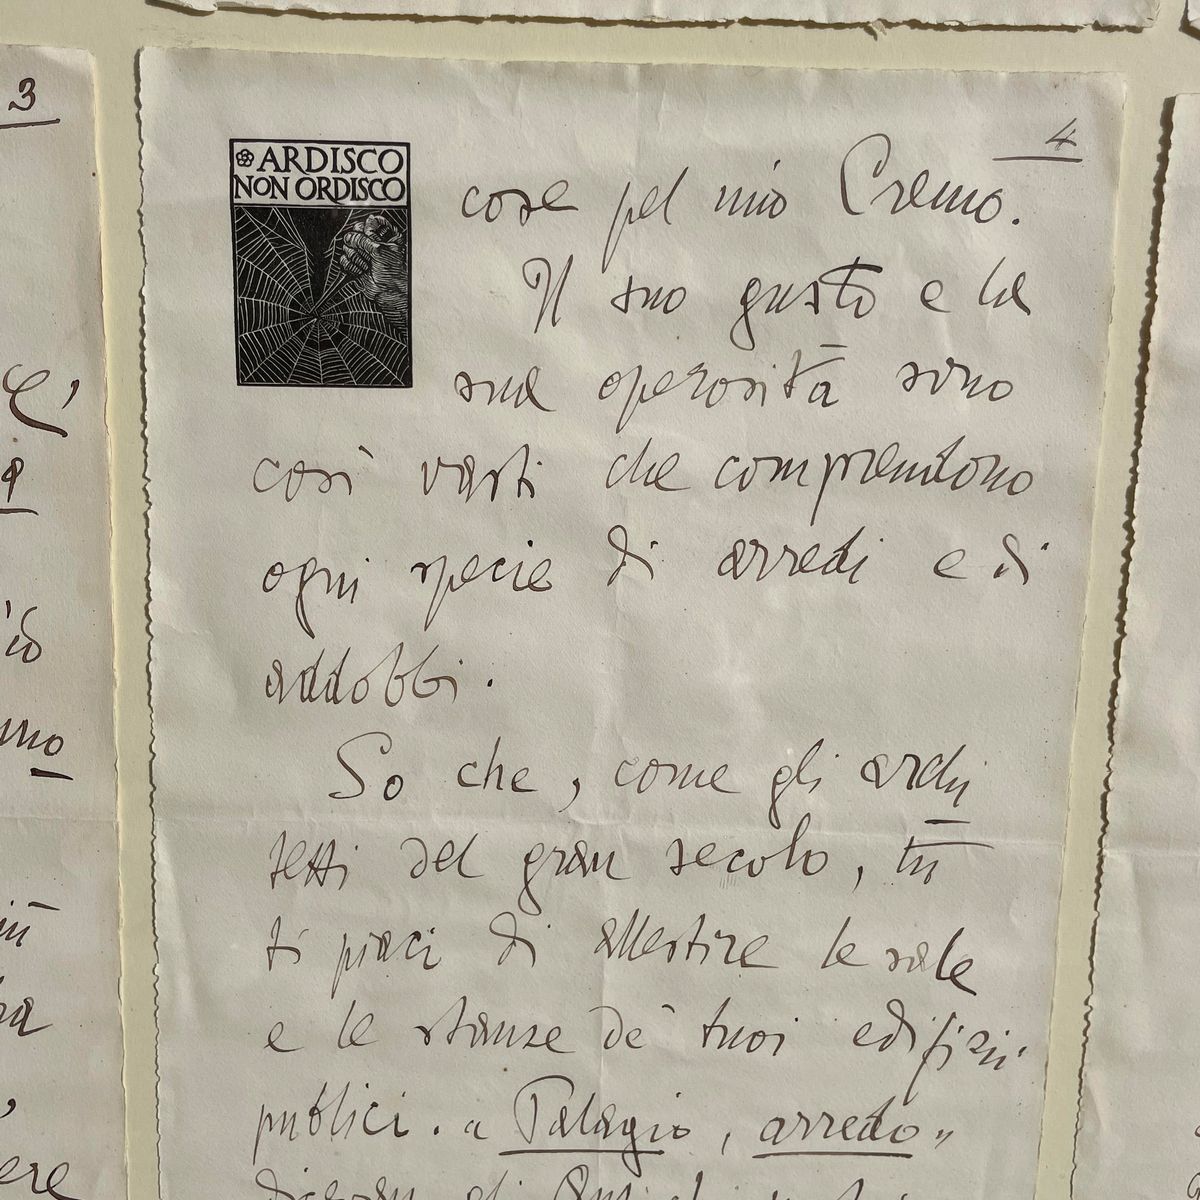 3
4
ARDISCO
NON ORDISCO
cose pel mio Cremo.
Il suo gusto e la
sua operosità sono
così vasti che comprendono
ogni specie di arredi e di
addobbi.
So che, come gli archi
tetti del gran secolo, tu
ti piaci di allestire le sale
e le stanze de' tuoi edifizii
publici. a Palagio, arredo"